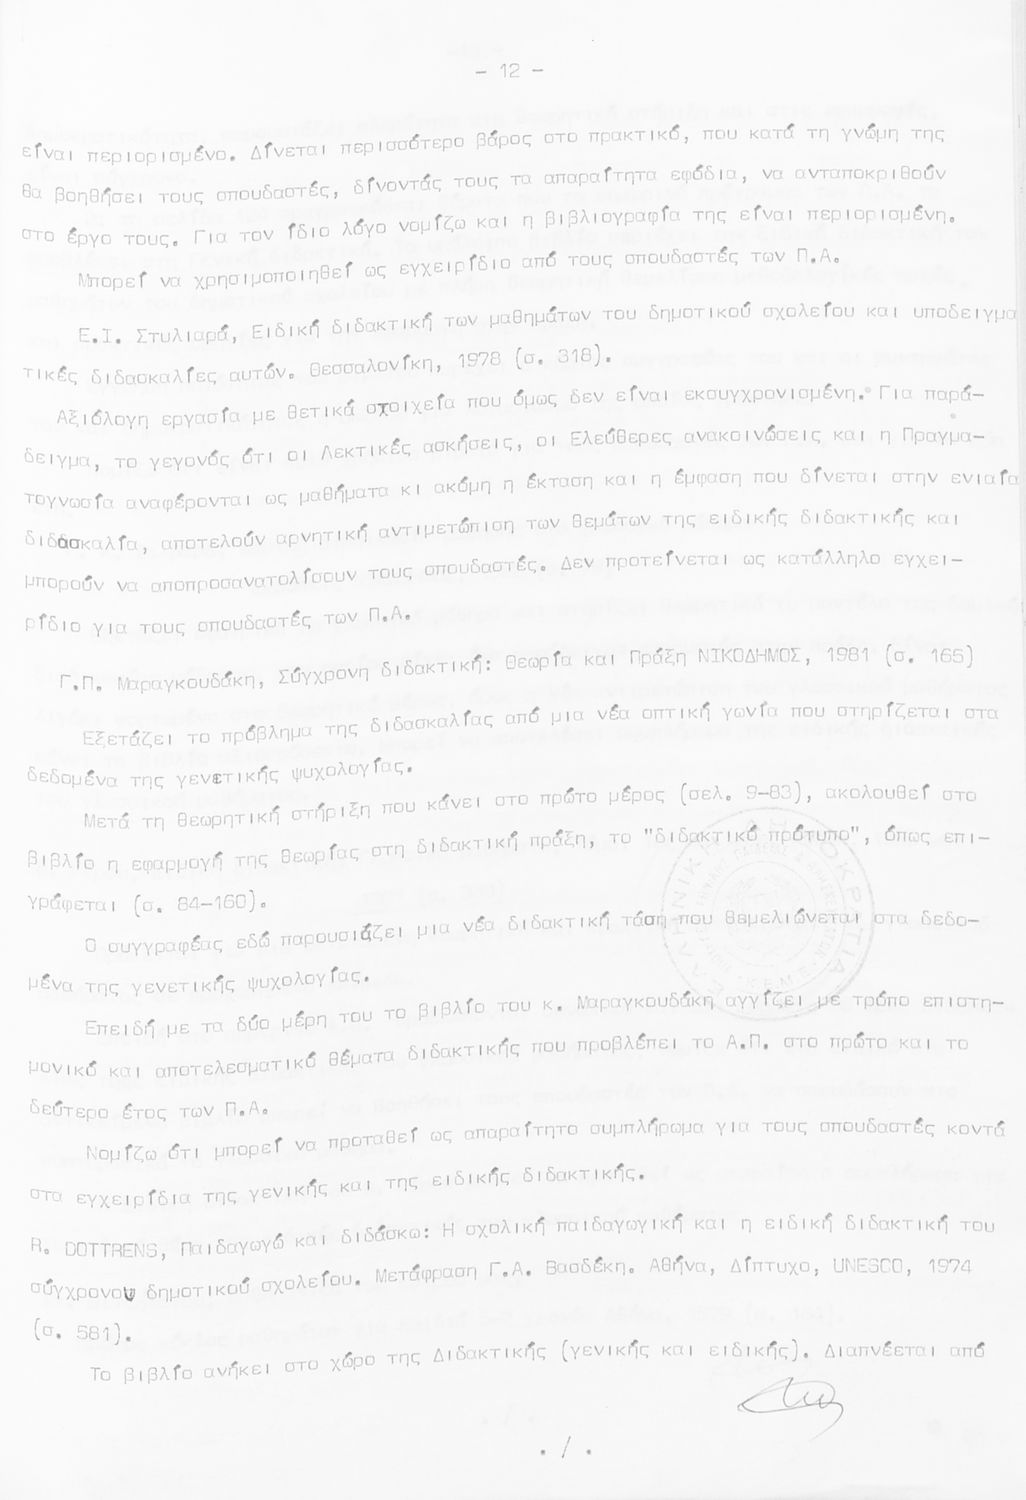 - 12 -
είναι περιορισμένο. Δίνεται περισσότερο βάρος στο πρακτικό, που κατά τη γνώμη της
θα βοηθήσει τους σπουδαστές, δίνοντάς τους τα απαραίτητα εφόδια, να ανταποκριθούν
στο έργο τους. Για τον ίδιο λόγο νομίζω και η βιβλιογραφία της είναι περιορισμένη.
Μπορεί να χρησιμοποιηθεί ως εγχειρίδιο από τους σπουδαστές των Π.Α.
Ε.Ι. Στυλιαρά, Ειδική διδακτική των μαθημάτων του δημοτικού σχολείου και υποδειγμα
τικές διδασκαλίες αυτών. Θεσσαλονίκη, 1978 (σ. 318).
Αξιόλογη εργασία με θετικά στοιχεία που όμως δεν είναι εκσυγχρονισμένη. Για παρά-
δειγμα, το γεγονός ότι οι Λεκτικές ασκήσεις, οι Ελεύθερες ανακοινώσεις και η Πραγμα-
τογνωσία αναφέρονται ως μαθήματα κι ακόμη η έκταση και η έμφαση που δίνεται στην ενιαία
διδασκαλία, αποτελούν αρνητική αντιμετώπιση των θεμάτων της ειδικής διδακτικής και
μπορούν να αποπροσανατολίσουν τους σπουδαστές. Δεν προτείνεται ως κατάλληλο εγχει-
ρίδιο για τους σπουδαστές των Π.Α.
Γ.Π. Μαραγκουδάκη, Σύγχρονη διδακτική: Θεωρία και Πράξη ΝΙΚΟΔΗΜΟΣ, 1981 (σ. 165)
Εξετάζει το πρόβλημα της διδασκαλίας από μια νέα οπτική γωνία που στηρίζεται στα
δεδομένα της γενετικής ψυχολογίας.
Μετά τη θεωρητική στήριξη που κάνει στο πρώτο μέρος (σελ. 9-83), ακολουθεί στο
βιβλίο η εφαρμογή της θεωρίας στη διδακτική πράξη, το "διδακτικό πρότυπο", όπως επι-
γράφεται (σ. 84-160).
Ο συγγραφέας εδώ παρουσιάζει μια νέα διδακτική τάση που θεμελιώνεται στα δεδο-
μένα της γενετικής ψυχολογίας.
Επειδή με τα δύο μέρη του το βιβλίο του κ. Μαραγκουδάκη αγγίζει με τρόπο επιστη-
μονικό και αποτελεσματικό θέματα διδακτικής που προβλέπει το Α.Π. στο πρώτο και το
δεύτερο έτος των Π.Α.
Νομίζω ότι μπορεί να προταθεί ως απαραίτητο συμπλήρωμα για τους σπουδαστές κοντά
στα εγχειρίδια της γενικής και της ειδικής διδακτικής.
R. DOTTRENS, Παιδαγωγώ και διδάσκω: Η σχολική παιδαγωγική και η ειδική διδακτική του
σύγχρονου δημοτικού σχολείου. Μετάφραση Γ.Α. Βασδέκη. Αθήνα, Δίπτυχο, UNESCO, 1974
(σ. 581).
Το βιβλίο ανήκει στο χώρο της Διδακτικής (γενικής και ειδικής). Διαπνέεται από
. / .
ΕΛΛΗΝΙΚΗ ΔΗΜΟΚΡΑΤΙΑ